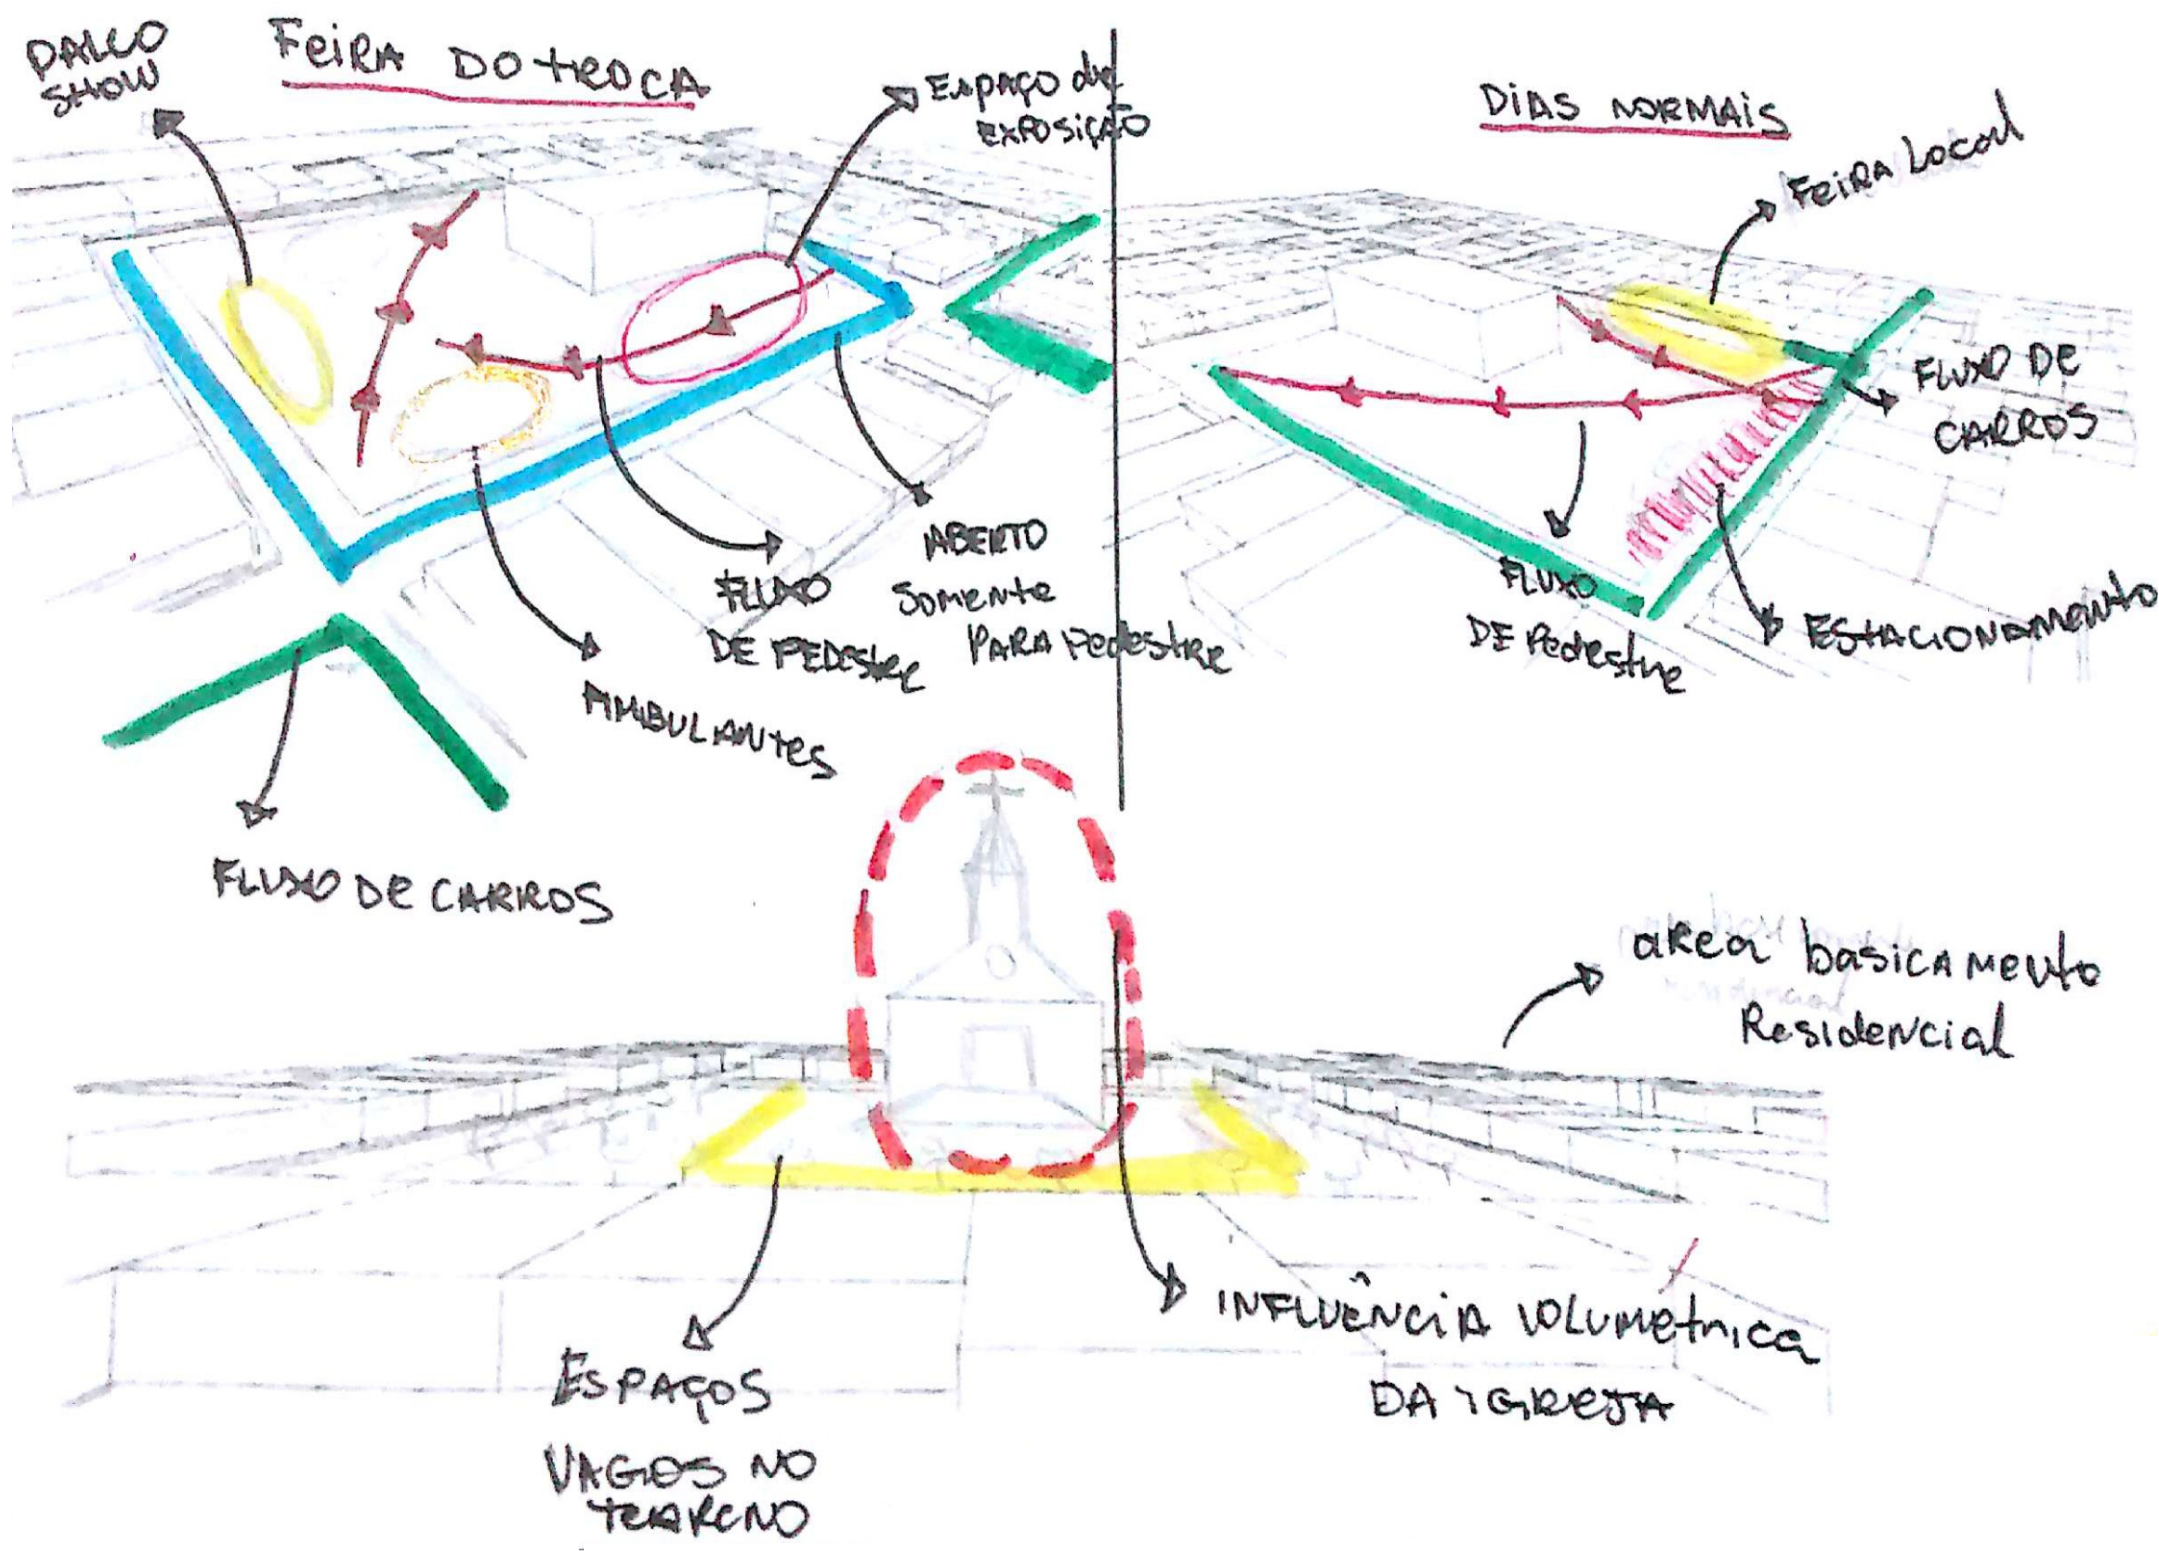 PALCO
SHOW
FEIRA DO TROCA
ESPAÇO DE
EXPOSIÇÃO
ABERTO
Somente
PARA Pedestre
FLUXO
DE PEDestre
AMBULANTES
FLUXO DE CARROS
DIAS NORMAIS
FEIRA Local
FLUXO DE
CARROS
FLUXO
DE Pedestre
ESTACIONAMENTO
area basicamente
Residencial
ESPAÇOS
VAGOS NO
TERRENO
INFLUÊNCIA VOLUMETRICA
DA IGREJA